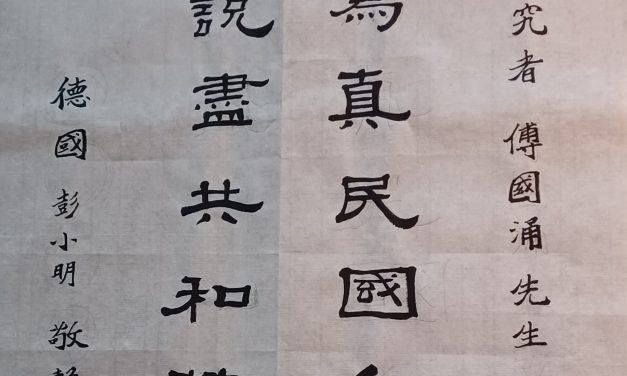 究者 傅國涌先生
為真民國
說盡共和
德國 彭小明 敬